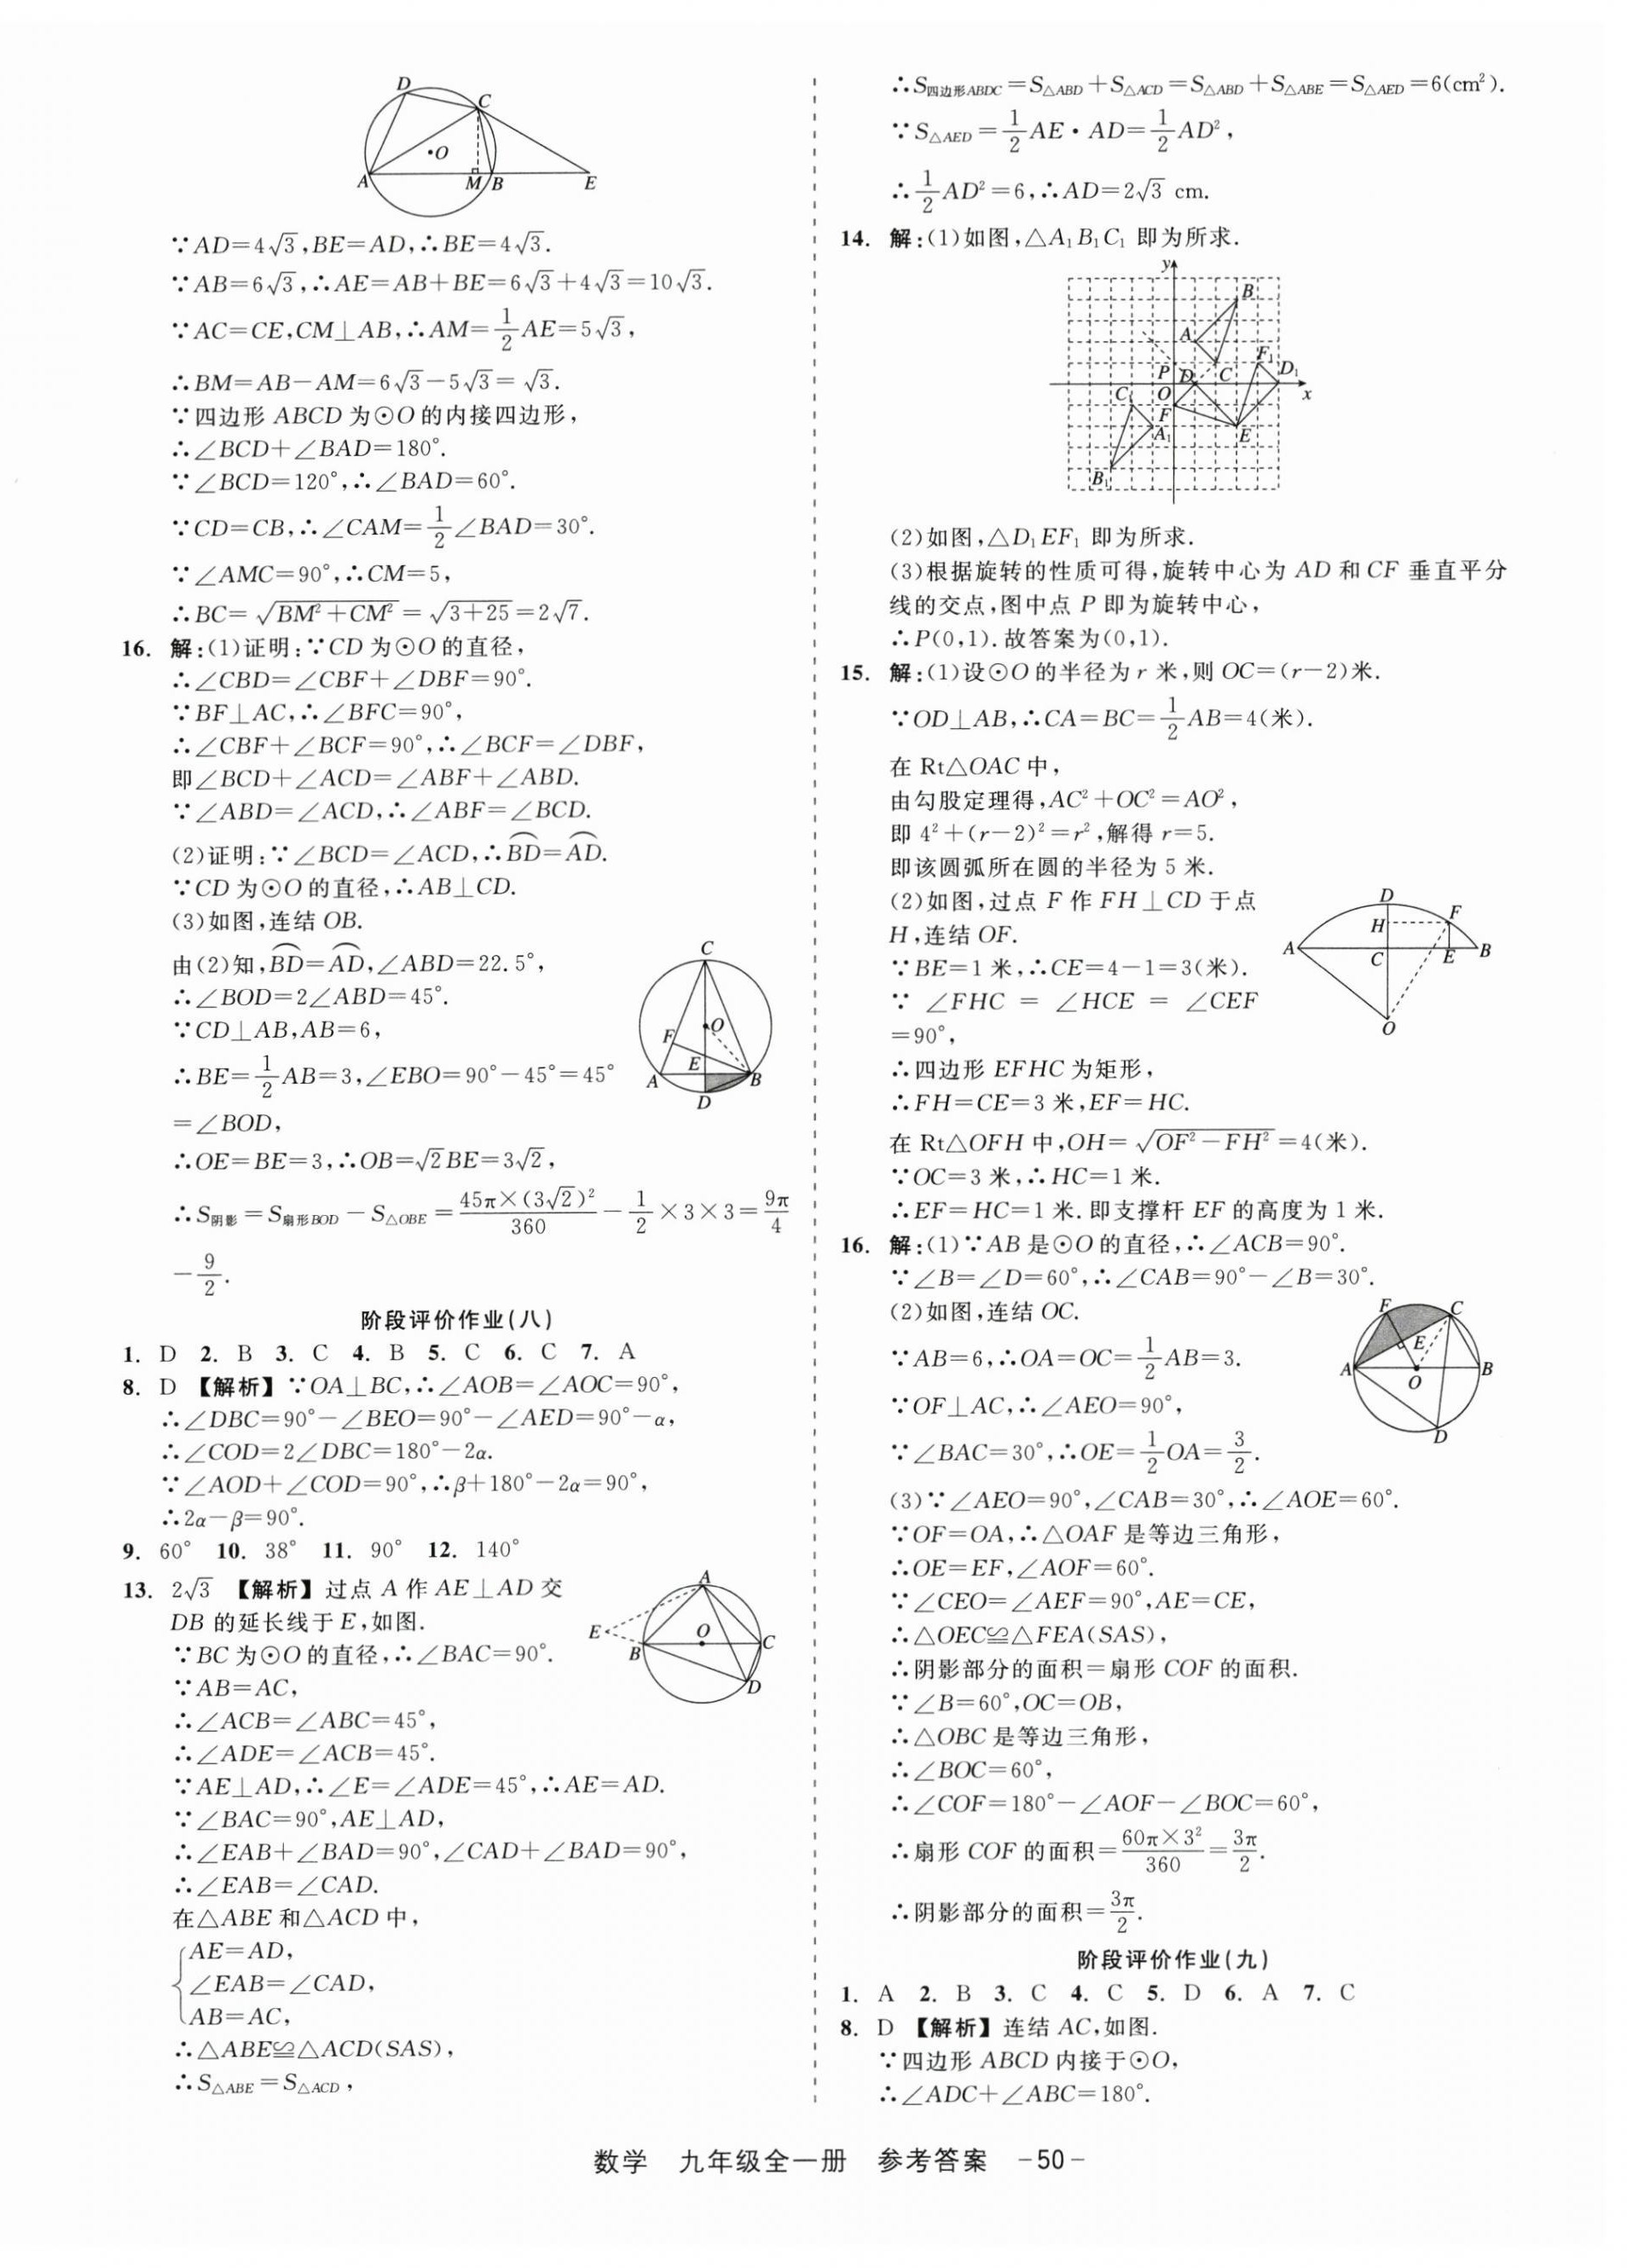 D
C
O
A
M
B
E
∵AD=4√3,BE=AD,∴BE=4√3.
∵AB=6√3,∴AE=AB+BE=6√3+4√3=10√3.
∵AC=CE,CM⊥AB,∴AM=1/2AE=5√3,
∴BM=AB-AM=6√3-5√3=√3.
∵四边形ABCD为⊙O的内接四边形,
∴∠BCD+∠BAD=180°.
∵∠BCD=120°,∴∠BAD=60°.
∵CD=CB,∴∠CAM=1/2∠BAD=30°.
∵∠AMC=90°,∴CM=5,
∴BC=√(BM²+CM²)=√(3+25)=2√7.
16. 解:(1)证明:∵CD为⊙O的直径,
∴∠CBD=∠CBF+∠DBF=90°.
∵BF⊥AC,∴∠BFC=90°,
∴∠CBF+∠BCF=90°,∴∠BCF=∠DBF,
即∠BCD+∠ACD=∠ABF+∠ABD.
∵∠ABD=∠ACD,∴∠ABF=∠BCD.
(2)证明:∵∠BCD=∠ACD,∴⌒BD=⌒AD.
∵CD为⊙O的直径,∴AB⊥CD.
(3)如图,连结OB.
由(2)知,⌒BD=⌒AD,∠ABD=22.5°,
∴∠BOD=2∠ABD=45°.
∵CD⊥AB,AB=6,
∴BE=1/2AB=3,∠EBO=90°-45°=45°
=∠BOD,
∴OE=BE=3,∴OB=√2BE=3√2,
C
O
F
E
A
B
D
∴S阴影=S扇形BOD-S△OBE=45π×(3√2)²/360-1/2×3×3=9π/4
-9/2.
阶段评价作业(八)
1. D 2. B 3. C 4. B 5. C 6. C 7. A
8. D 【解析】∵OA⊥BC,∴∠AOB=∠AOC=90°,
∴∠DBC=90°-∠BEO=90°-∠AED=90°-α,
∴∠COD=2∠DBC=180°-2α.
∵∠AOD+∠COD=90°,∴β+180°-2α=90°,
∴2α-β=90°.
9. 60° 10. 38° 11. 90° 12. 140°
13. 2√3 【解析】过点A作AE⊥AD交
DB的延长线于E,如图.
∵BC为⊙O的直径,∴∠BAC=90°.
∵AB=AC,
∴∠ACB=∠ABC=45°,
∴∠ADE=∠ACB=45°.
A
E
O
B
C
D
∵AE⊥AD,∴∠E=∠ADE=45°,∴AE=AD.
∵∠BAC=90°,AE⊥AD,
∴∠EAB+∠BAD=90°,∠CAD+∠BAD=90°,
∴∠EAB=∠CAD.
在△ABE和△ACD中,
AE=AD,
∠EAB=∠CAD,
AB=AC,
∴△ABE≌△ACD(SAS),
∴S△ABE=S△ACD,
∴S四边形ABDC=S△ABD+S△ACD=S△ABD+S△ABE=S△AED=6(cm²).
∵S△AED=1/2AE·AD=1/2AD²,
∴1/2AD²=6,∴AD=2√3 cm.
14. 解:(1)如图,△A₁B₁C₁即为所求.
y
B
A
F₁
P
D
C
D₁
C₁
O
x
F
A₁
E
B₁
(2)如图,△D₁EF₁即为所求.
(3)根据旋转的性质可得,旋转中心为AD和CF垂直平分
线的交点,图中点P即为旋转中心,
∴P(0,1).故答案为(0,1).
15. 解:(1)设⊙O的半径为r米,则OC=(r-2)米.
∵OD⊥AB,∴CA=BC=1/2AB=4(米).
在Rt△OAC中,
由勾股定理得,AC²+OC²=AO²,
即4²+(r-2)²=r²,解得r=5.
即该圆弧所在圆的半径为5米.
(2)如图,过点F作FH⊥CD于点
H,连结OF.
∵BE=1米,∴CE=4-1=3(米).
∵ ∠FHC = ∠HCE = ∠CEF
=90°,
D
F
H
A
C
E
B
O
∴四边形EFHC为矩形,
∴FH=CE=3米,EF=HC.
在Rt△OFH中,OH=√(OF²-FH²)=4(米).
∵OC=3米,∴HC=1米.
∴EF=HC=1米.即支撑杆EF的高度为1米.
16. 解:(1)∵AB是⊙O的直径,∴∠ACB=90°.
∵∠B=∠D=60°,∴∠CAB=90°-∠B=30°.
(2)如图,连结OC.
∵AB=6,∴OA=OC=1/2AB=3.
∵OF⊥AC,∴∠AEO=90°,
∵∠BAC=30°,∴OE=1/2OA=3/2.
F
C
E
A
O
B
D
(3)∵∠AEO=90°,∠CAB=30°,∴∠AOE=60°.
∵OF=OA,∴△OAF是等边三角形,
∴OE=EF,∠AOF=60°.
∵∠CEO=∠AEF=90°,AE=CE,
∴△OEC≌△FEA(SAS),
∴阴影部分的面积=扇形COF的面积.
∵∠B=60°,OC=OB,
∴△OBC是等边三角形,
∴∠BOC=60°,
∴∠COF=180°-∠AOF-∠BOC=60°,
∴扇形COF的面积=60π×3²/360=3π/2.
∴阴影部分的面积=3π/2.
阶段评价作业(九)
1. A 2. B 3. C 4. C 5. D 6. A 7. C
8. D 【解析】连结AC,如图.
∵四边形ABCD内接于⊙O,
∴∠ADC+∠ABC=180°.
数学 九年级全一册 参考答案 -50-